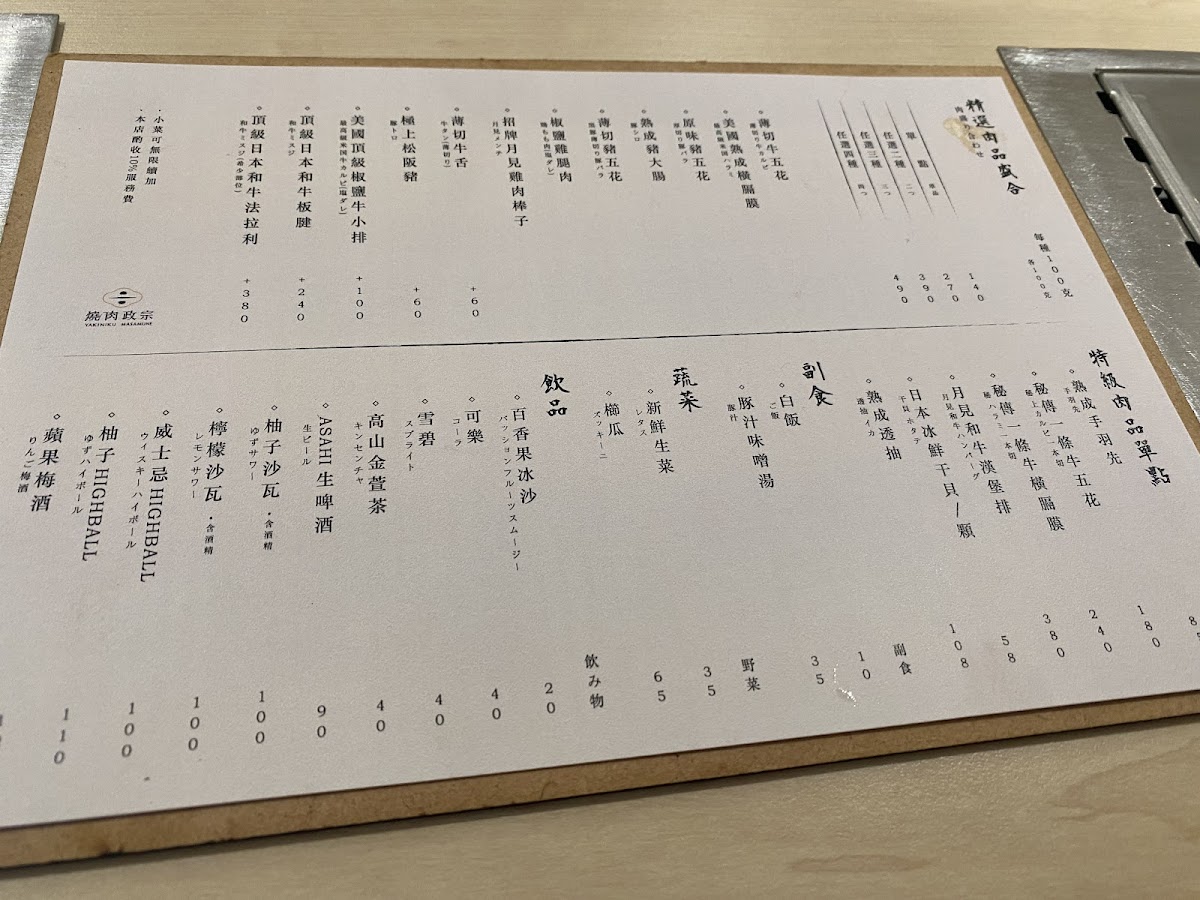 精選肉品盛合
肉盛り合わせ
每種100克
各100克
單點 單品 140
任選二種 二つ 270
任選三種 三つ 390
任選四種 四つ 490
薄切牛五花
薄切り牛カルビ
美國熟成橫膈膜
最高級米国ハラミ
原味豬五花
厚切り豚バラ
熟成豬大腸
豚シロ
薄切豬五花
黒豚薄切り豚バラ
椒鹽雞腿肉
鶏もも肉(塩ダレ)
招牌月見雞肉棒子
月見メンチ
薄切牛舌 +60
牛タン(薄切り)
極上松阪豬 +60
豚トロ
美國頂級椒鹽牛小排 +100
最高級米国牛カルビ(塩ダレ)
頂級日本和牛板腱 +240
和牛ミスジ
頂級日本和牛法拉利 +380
和牛ミスジ(希少部位)
・小菜可無限續加
・本店酌收10%服務費
燒肉政宗
YAKINIKU MASAMUNE
特級肉品單點
熟成手羽先
手羽先
秘傳一條牛五花 180
極上カルビ一本切
秘傳一條牛橫膈膜 240
極ハラミ一本切
月見和牛漢堡排 380
月見和牛ハンバーグ
日本冰鮮干貝/顆 58
干貝ホタテ
熟成透抽 108
透抽イカ
副食 副食
白飯 10
ご飯
豚汁味噌湯 35
豚汁
蔬菜 野菜
新鮮生菜 35
レタス
櫛瓜 65
ズッキーニ
飲品 飲み物
百香果冰沙 20
パッションフルーツスムージー
可樂 40
コーラ
雪碧 40
スプライト
高山金萱茶 40
キンセンチャ
ASAHI生啤酒 90
生ビール
柚子沙瓦 ・含酒精 100
ゆずサワー
檸檬沙瓦 ・含酒精 100
レモンサワー
威士忌HIGHBALL 100
ウィスキーハイボール
柚子HIGHBALL 110
ゆずハイボール
蘋果梅酒
りんご梅酒